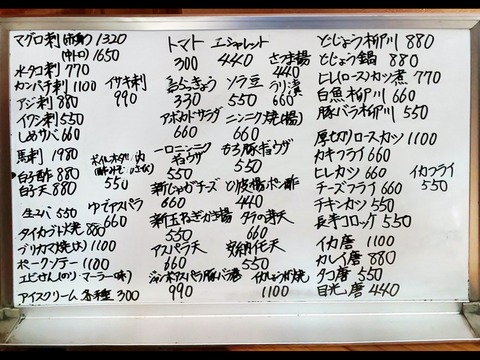 マグロ刺(赤身)1320
(中トロ)1650
水タコ刺 770
カンパチ刺 1100
イサキ刺
990
アジ刺 880
イワシ刺 550
しめサバ 660
馬刺 1980
白子酢 880
白子天 880
550
生ユバ 550
ゆでアスパラ
660
タイカブト焼 880
ブリカマ焼(ハーフ)1100
ポークソテー 1100
エビせん(のり・マーラー味)
アイスクリーム 各種 300
トマト
300
エシャレット
440
さつま揚
440
島らっきょう
330
ソラ豆
550
ラリ漬
660
アボカドサラダ
660
ニンニク焼(揚)
660
一口ニンニク
ギョウザ
550
もろ豚ギョウザ
550
新じゃがチーズ
660
とり皮揚ポン酢
440
新玉ねぎかき揚
550
タラの芽天
660
アスパラ天
660
安納芋天
550
ジャンボアスパラ豚バラ巻
990
イカしょうが焼
1100
どじょう柳川 880
どじょう鍋 880
ヒレ(ロース)カツ煮 770
白魚柳川 660
豚バラ柳川 550
厚切りロースカツ 1100
カキフライ 660
ヒレカツ 660
イカフライ
550
チーズフライ 660
チキンカツ 550
長芋コロッケ 550
イカ唐 1100
カレイ唐 880
タコ唐 550
目光唐 440